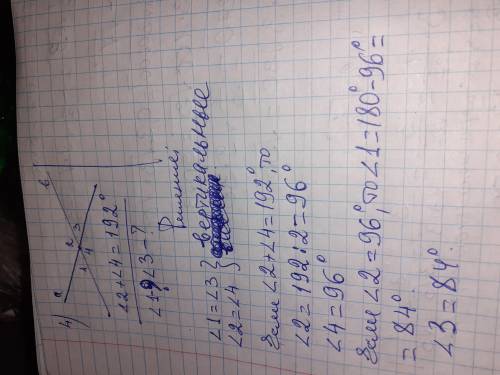 4) a b
1 2 3 4
∠2+∠4=192°
∠1, ∠3-?
Решение:
∠1=∠3 } вертикальные
∠2=∠4 }
Если ∠2+∠4=192°, то
∠2=192:2=96°
∠4=96°
Если ∠2=96°, то ∠1=180°-96°=
=84°.
∠3=84°.